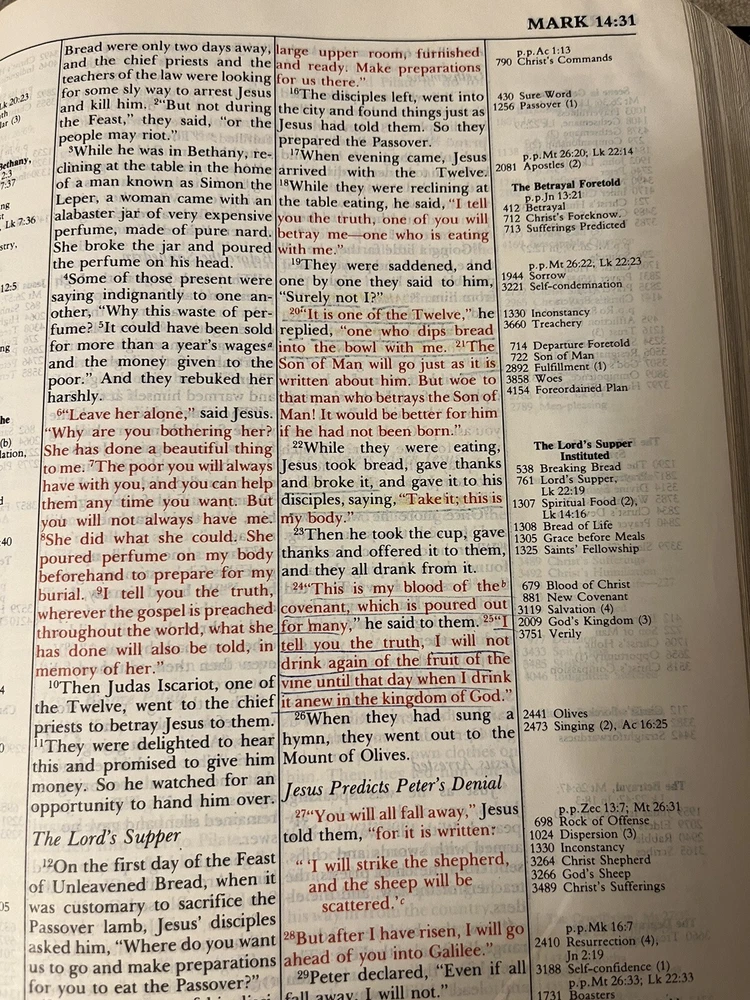 MARK 14:31
Lk 20:23
(3)
Bethany,
2:3
7:37
Lk 7:36
12:5
(b)
:40
Bread were only two days away,
and the chief priests and the
teachers of the law were looking
for some sly way to arrest Jesus
and kill him. 2“But not during
the Feast,” they said, “or the
people may riot.”
3While he was in Bethany, re-
clining at the table in the home
of a man known as Simon the
Leper, a woman came with an
alabaster jar of very expensive
perfume, made of pure nard.
She broke the jar and poured
the perfume on his head.
4Some of those present were
saying indignantly to one an-
other, “Why this waste of per-
fume? 5It could have been sold
for more than a year’s wagesa
and the money given to the
poor.” And they rebuked her
harshly.
6“Leave her alone,” said Jesus.
“Why are you bothering her?
She has done a beautiful thing
to me. 7The poor you will always
have with you, and you can help
them any time you want. But
you will not always have me.
8She did what she could. She
poured perfume on my body
beforehand to prepare for my
burial. 9I tell you the truth,
wherever the gospel is preached
throughout the world, what she
has done will also be told, in
memory of her.”
10Then Judas Iscariot, one of
the Twelve, went to the chief
priests to betray Jesus to them.
11They were delighted to hear
this and promised to give him
money. So he watched for an
opportunity to hand him over.
The Lord’s Supper
12On the first day of the Feast
of Unleavened Bread, when it
was customary to sacrifice the
Passover lamb, Jesus’ disciples
asked him, “Where do you want
us to go and make preparations
for you to eat the Passover?”
large upper room, furnished
and ready. Make preparations
for us there.”
16The disciples left, went into
the city and found things just as
Jesus had told them. So they
prepared the Passover.
17When evening came, Jesus
arrived with the Twelve.
18While they were reclining at
the table eating, he said, “I tell
you the truth, one of you will
betray me—one who is eating
with me.”
19They were saddened, and
one by one they said to him,
“Surely not I?”
20“It is one of the Twelve,” he
replied, “one who dips bread
into the bowl with me. 21The
Son of Man will go just as it is
written about him. But woe to
that man who betrays the Son of
Man! It would be better for him
if he had not been born.”
22While they were eating,
Jesus took bread, gave thanks
and broke it, and gave it to his
disciples, saying, “Take it; this is
my body.”
23Then he took the cup, gave
thanks and offered it to them,
and they all drank from it.
24“This is my blood of theb
covenant, which is poured out
for many,” he said to them. 25“I
tell you the truth, I will not
drink again of the fruit of the
vine until that day when I drink
it anew in the kingdom of God.”
26When they had sung a
hymn, they went out to the
Mount of Olives.
Jesus Predicts Peter’s Denial
27“You will all fall away,” Jesus
told them, “for it is written:
“ ‘I will strike the shepherd,
and the sheep will be
scattered.’c
28But after I have risen, I will go
ahead of you into Galilee.”
29Peter declared, “Even if all
fall away, I will not.”
p.p.Ac 1:13
790 Christ’s Commands
430 Sure Word
1256 Passover (1)
p.p.Mt 26:20; Lk 22:14
2081 Apostles (2)
The Betrayal Foretold
p.p.Jn 13:21
412 Betrayal
712 Christ’s Foreknow.
713 Sufferings Predicted
p.p.Mt 26:22, Lk 22:23
1944 Sorrow
3221 Self-condemnation
1330 Inconstancy
3660 Treachery
714 Departure Foretold
722 Son of Man
2892 Fulfillment (1)
3858 Woes
4154 Foreordained Plan
The Lord’s Supper
Instituted
538 Breaking Bread
761 Lord’s Supper,
Lk 22:19
1307 Spiritual Food (2),
Lk 14:16
1308 Bread of Life
1305 Grace before Meals
1325 Saints’ Fellowship
679 Blood of Christ
881 New Covenant
3119 Salvation (4)
2009 God’s Kingdom (3)
3751 Verily
2441 Olives
2473 Singing (2), Ac 16:25
p.p.Zec 13:7; Mt 26:31
698 Rock of Offense
1024 Dispersion (3)
1330 Inconstancy
3264 Christ Shepherd
3266 God’s Sheep
3489 Christ’s Sufferings
p.p.Mk 16:7
2410 Resurrection (4),
Jn 2:19
3188 Self-confidence (1)
p.p.Mt 26:33; Lk 22:33
1731 Boasters